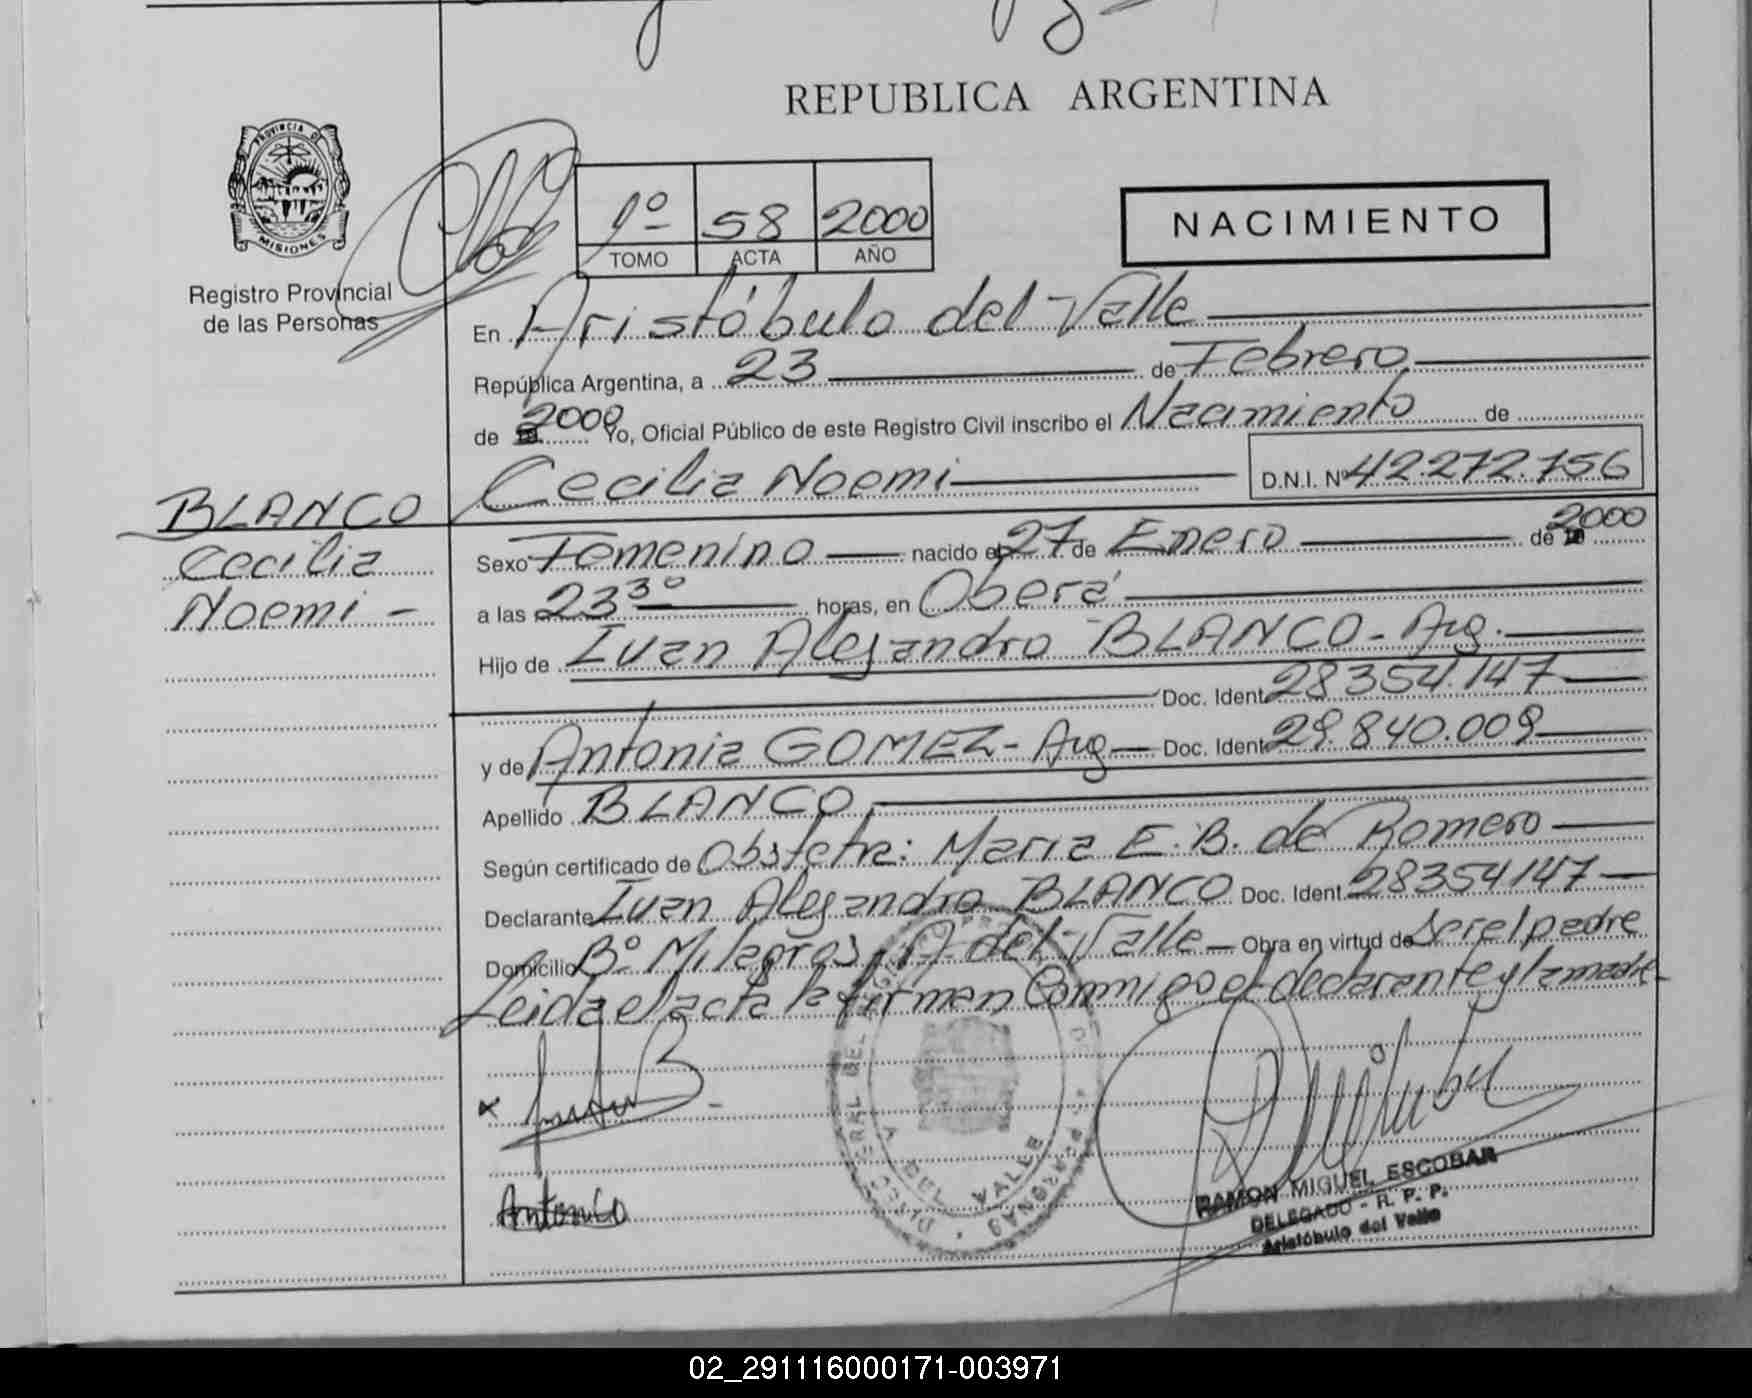 REPUBLICA ARGENTINA
PROVINCIA D
MISIONES
Registro Provincial
de las Personas
1º 58 2000
TOMO ACTA AÑO
NACIMIENTO
En Aristóbulo del Valle
República Argentina, a 23 de Febrero
de 2000 Yo, Oficial Público de este Registro Civil inscribo el Nacimiento de
Cecilia Noemi D.N.I. Nº 42.272.756
BLANCO
Cecilia
Noemi -
Sexo Femenino nacido el 27 de Enero de 2000
a las 23 30 horas, en Oberá
Hijo de Ivan Alejandro BLANCO - Arg.
Doc. Ident. 28354.147
y de Antonia GOMEZ - Arg Doc. Ident. 29.840.009
Apellido BLANCO
Según certificado de Obstetra: Maria E. B. de Romero
Declarante Ivan Alejandro BLANCO Doc. Ident. 28354147
Domicilio Bº Milagros A. del Valle Obra en virtud de ser el padre
Leida el acta la firman Conmigo el declarante y la madre
A DEL VALLE
RAMON MIGUEL ESCOBAR
DELEGADO - R. P. P.
Aristóbulo del Valle
02_291116000171-003971